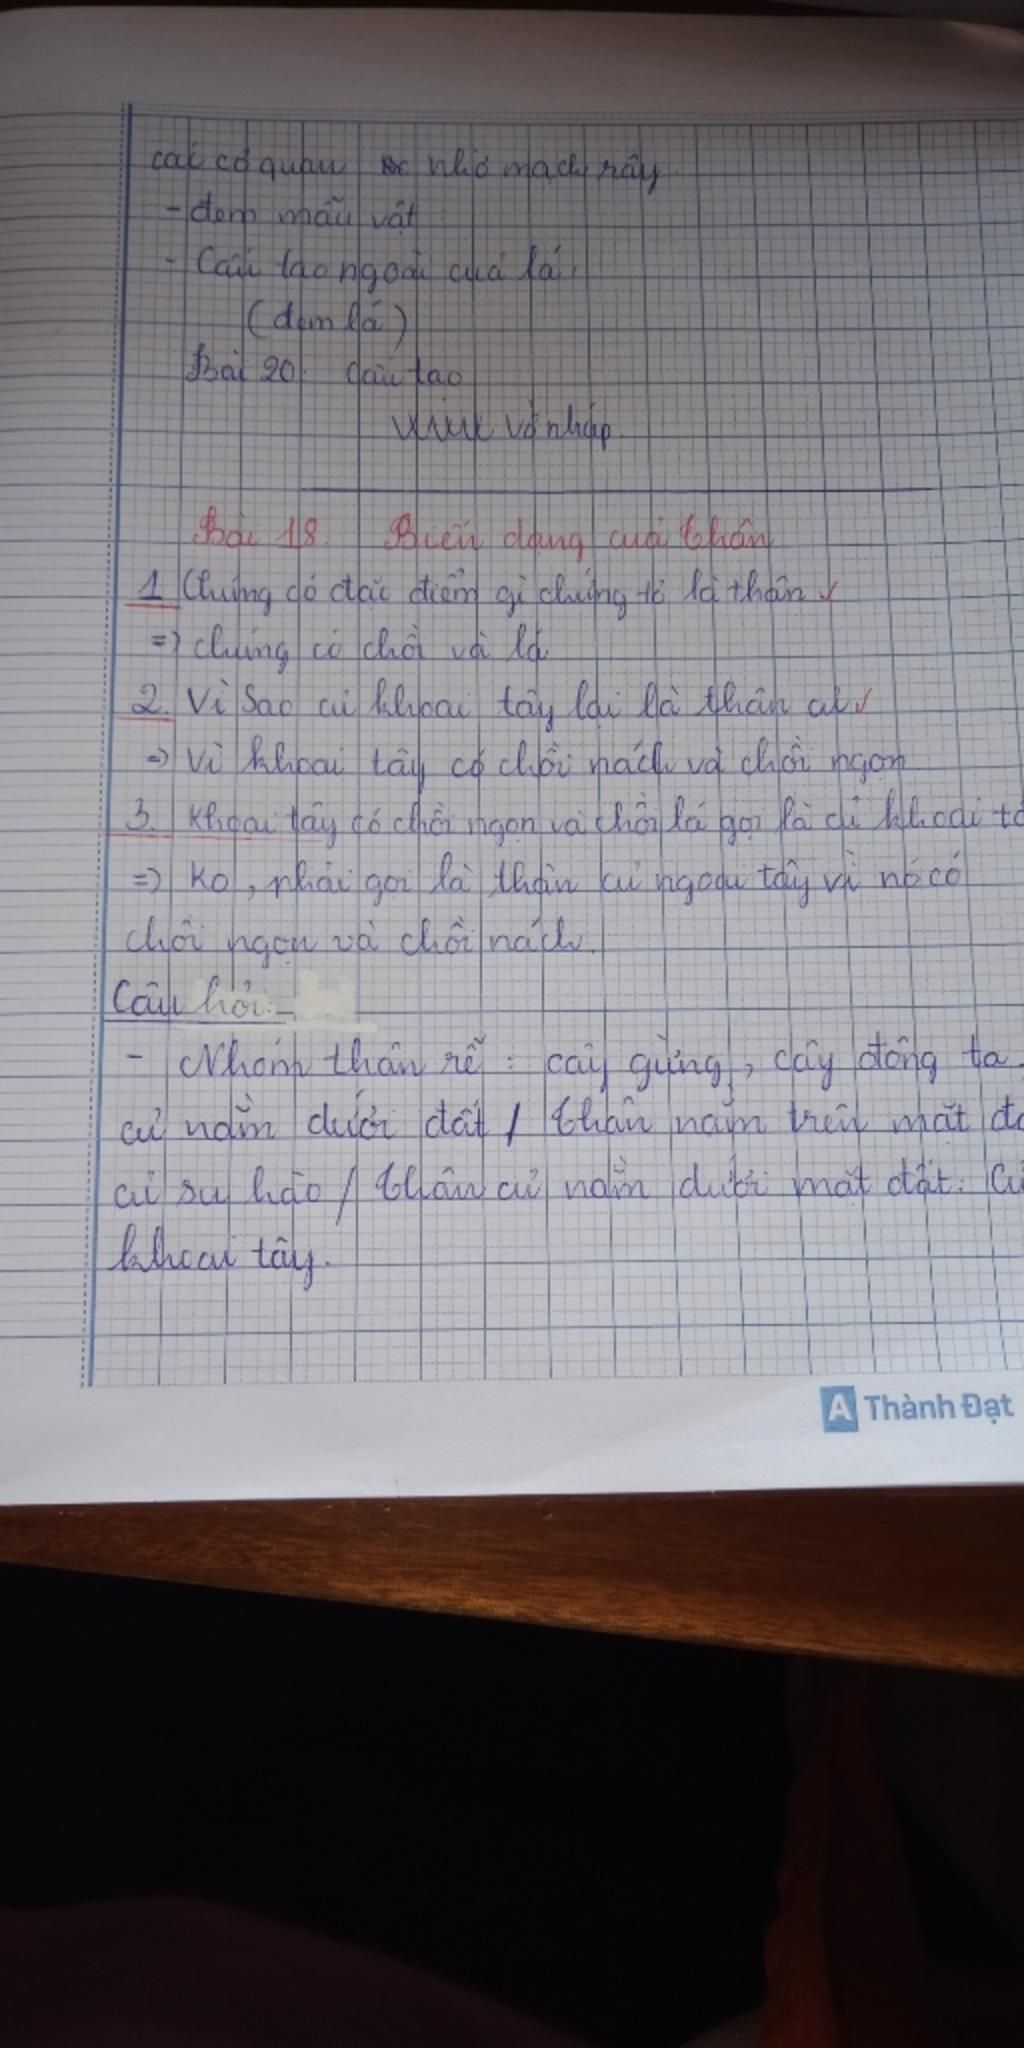 các cơ quan nhờ mạch rây
- đem mẫu vật
- Cấu tạo ngoài của lá.
(đem lá)
Bài 20 Cấu tạo
vở nháp
Bài 18 Biến dạng của thân
1 Chúng có đặc điểm gì chứng tỏ là thân
=> chúng có chồi và lá
2. Vì sao củ khoai tây lại là thân củ
=> Vì khoai tây có chồi nách và chồi ngọn
3. Khoai tây có chồi ngọn và chồi lá gọi là củ khoai
=> Ko, phải gọi là thân củ ngoai tây vì nó có
chồi ngọn và chồi nách.
Câu hỏi:
- Nhóm thân rễ: cây gừng, cây dong ta
củ nằm dưới đất / thân nằm trên mặt
củ su hào / thân củ nằm dưới mặt đất: Củ
khoai tây.
A Thành Đạt